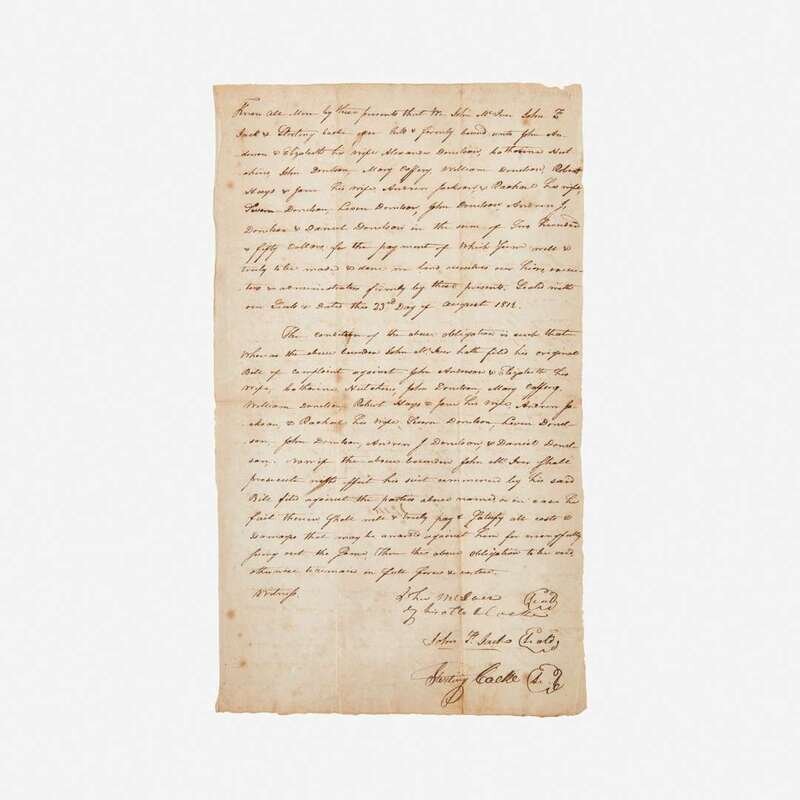 Know All Men by these presents that We John McIver John F
Jack & Sterling Cocke are held & firmly bound unto John An-
derson & Elizabeth his wife Alexander Donelson, Katharine Hut-
chins, John Donelson, Mary Caffery, William Donelson, Robert
Hays & Jane his wife Andrew Jackson, & Rachael his wife,
Severn Donelson, Leven Donelson, John Donelson Andrew J.
Donelson & Daniel Donelson in the sum of Two Hundred
& fifty Dollars for the payment of Which Sum well &
truly to be made & done we bind ourselves our heirs, execu-
tors & administrators firmly by these presents. Sealed with
our Seals & Dated this 23rd Day of August 1812.
The condition of the above obligation is such that
Whereas the above bounden John McIver hath filed his original
Bill of Complaint against John Anderson & Elizabeth his
Wife, Katharine Hutchins, John Donelson, Mary Caffery
William Donelson, Robert Hays & Jane his wife, Andrew Ja-
ckson, & Rachael his wife, Severn Donelson, Leven Donel-
son, John Donelson, Andrew J Donelson, & Daniel Donel-
son. Now if the above bounden John McIver Shall
prosecute with effect his suit commenced by his said
Bill filed against the parties above named or in case he
fail therein Shall well & truly pay & Satisfy all costs &
Damages that may be awarded against him for wrongfully
suing out the Same, Then the above obligation to be void,
otherwise to remain in full force & virtue.
Witness John McIver Seal
by his atto Cocke
John F. Jack Seal
Sterling Cocke